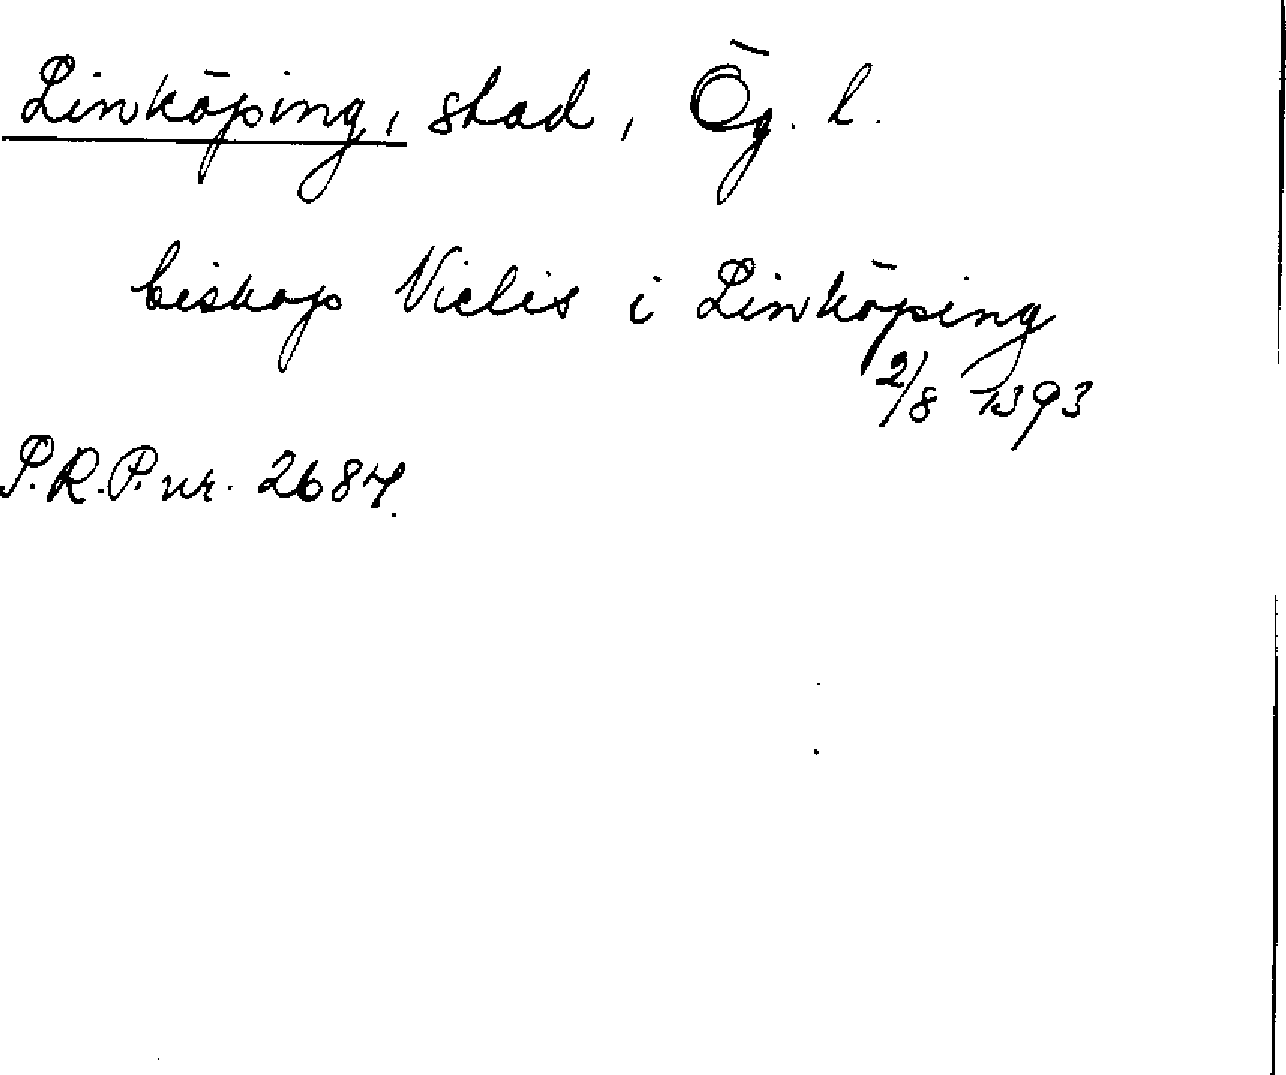 Linköping, stad, Ög. l.
biskop Niclis i Linköping
2/8 1393
P.R.P. nr. 2687.